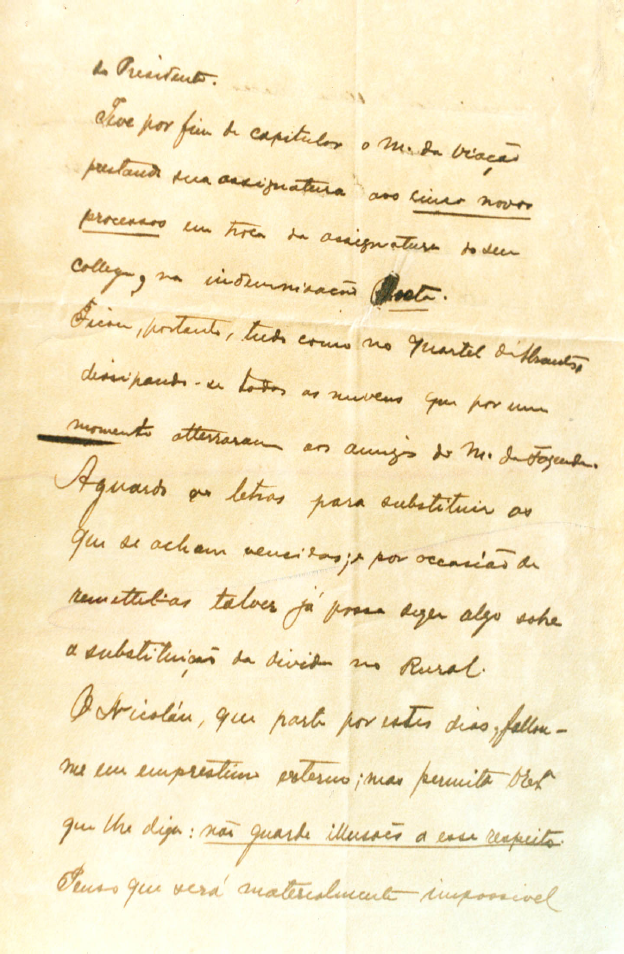 do Presidente.
Teve por fim de capitular o M. da Viação
prestando sua assignatura aos cinco novos
processos em troca da assignatura do seu
collega, na indemnisação
Ficou, portanto, tudo como no Quartel d'Abrantes,
dissipando-se todas as nuvens que por um
momento atterraram aos amigos do M. da Fazenda.
Aguardo as letras para substituir as
que se acham vencidas, e por occasião de
remettel-as talvez já possa dizer algo sobre
a substituição da divida no Rural.
O Nicoláu, que parte por estes dias, fallou-
me em emprestimo externo; mas permitta
que lhe diga: não guarde illusões a esse respeito.
Penso que será materialmente impossivel